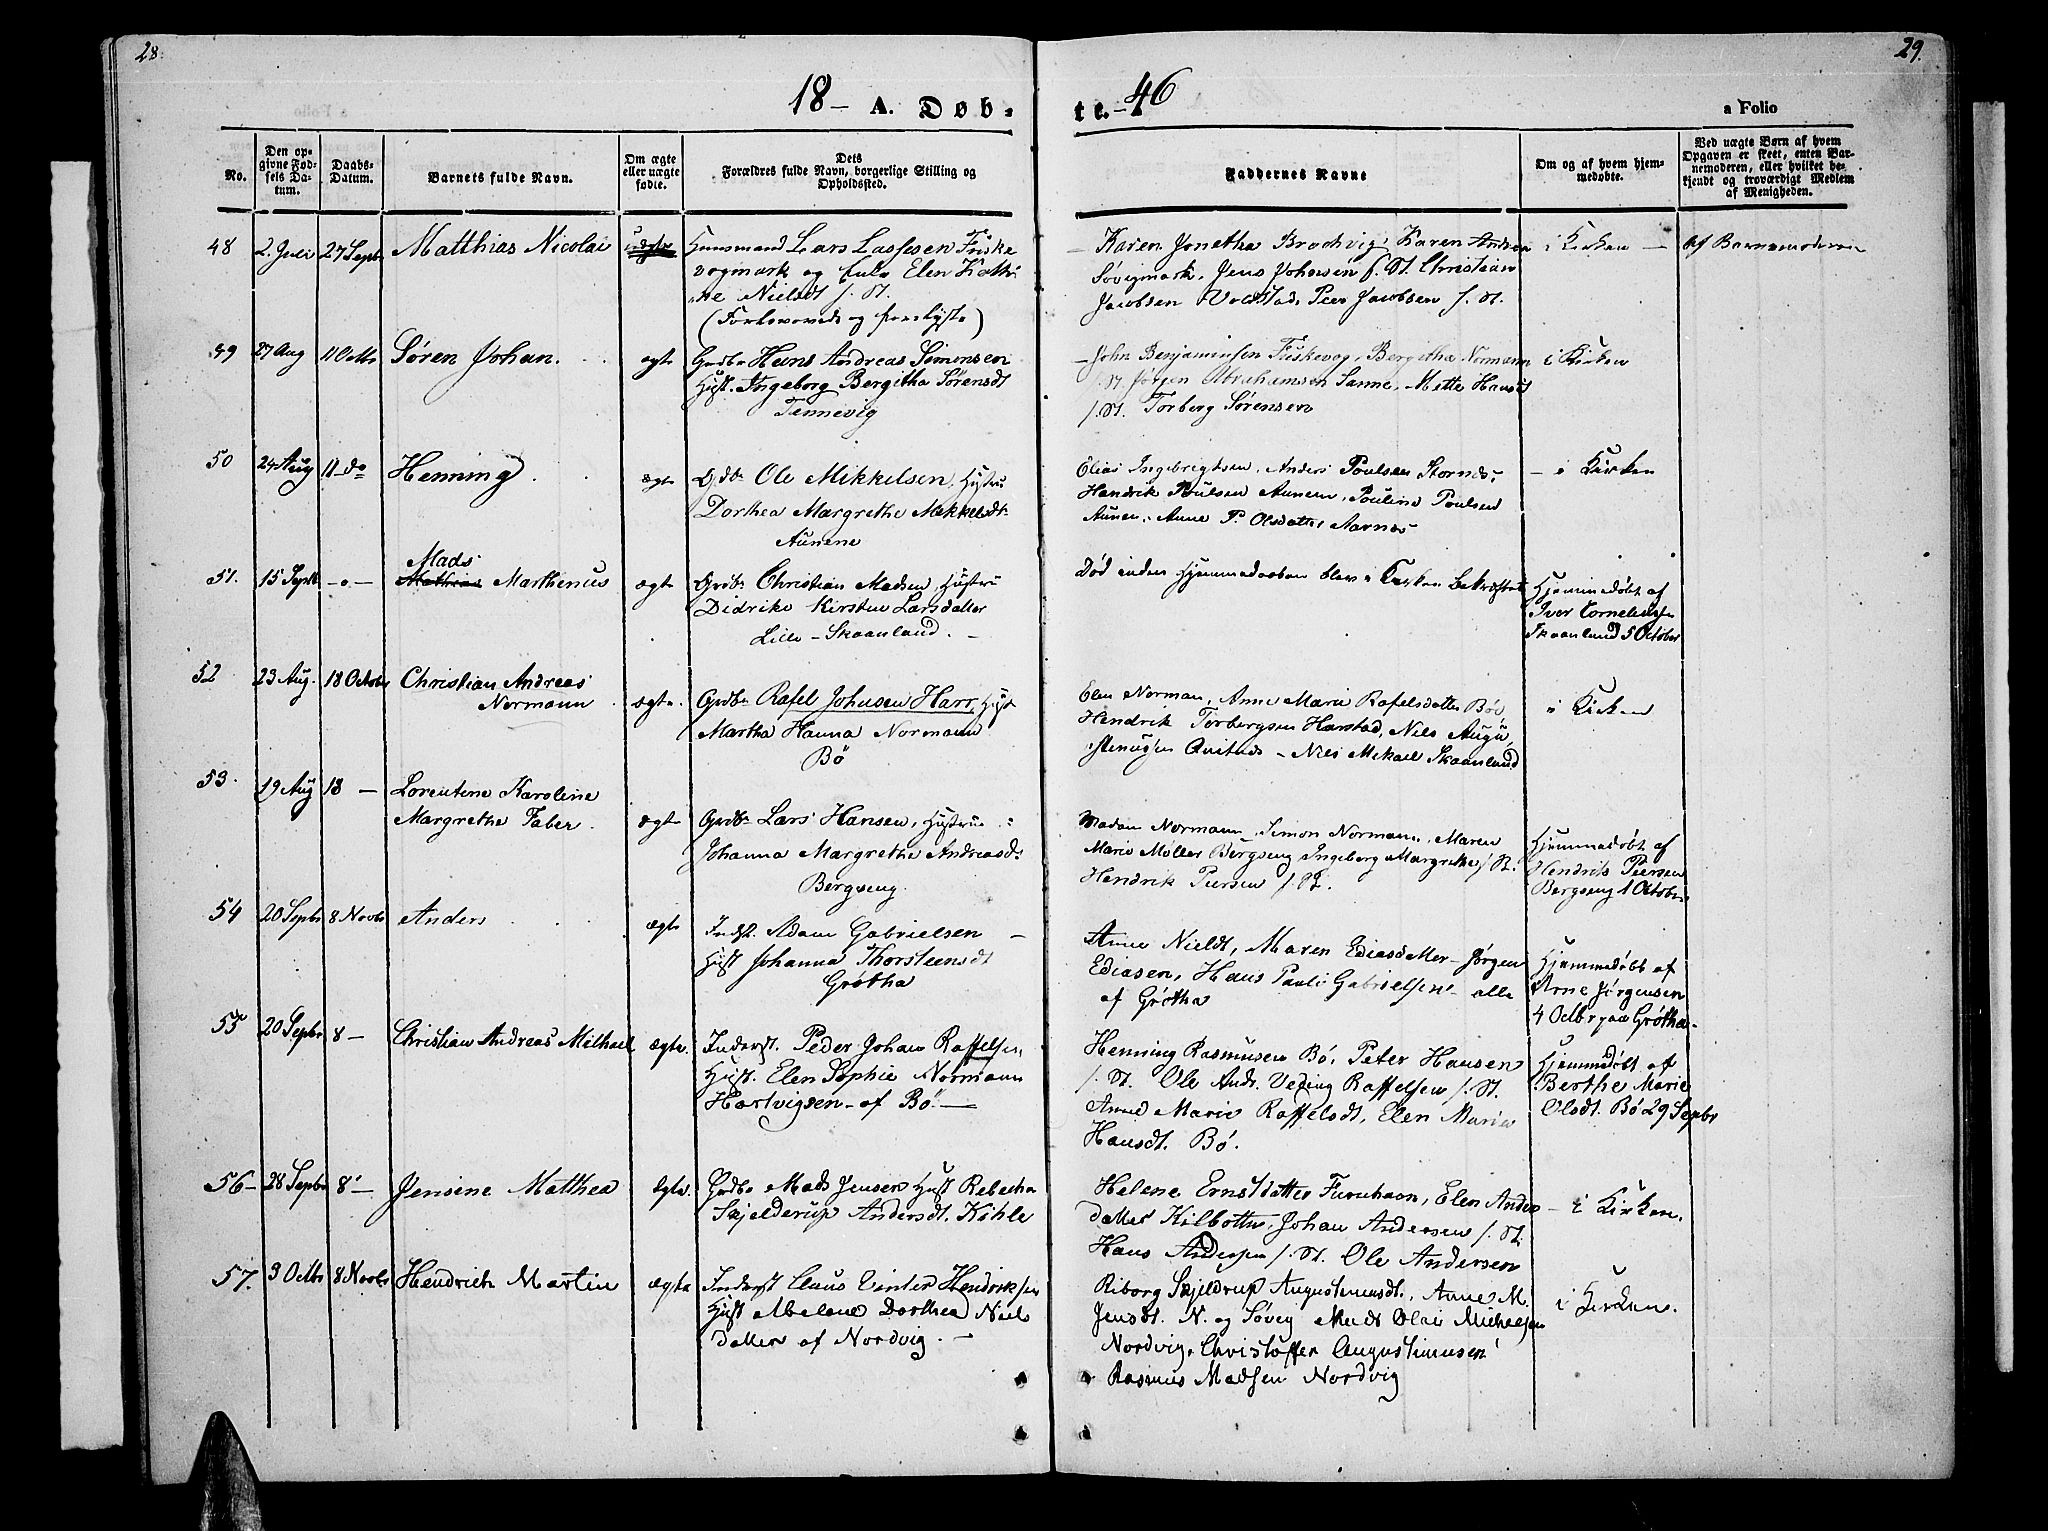 28.
29.
18 - A. Døb-
te. - 46
a Folio
No.
Den op-
givne Fød-
sels Da-
tum.
Daabs-
Datum.
Barnets fulde Navn.
Om ægte
eller uægte
fødte.
Dets
Forældres fulde Navn, borgerlige Stilling og
Opholdssted.
Faddernes Navne
Om og af hvem hjem-
medøbte.
Ved uægte Børn af hvem
Opgaven er skeet, enten Bar-
nemoderen, eller hvilket be-
kjendt og troværdigt Medlem
af Menigheden.
48 2. Juli 27 Septbr Matthias Nicolai uægte
Huusmand Lars Lassesen Fiske
vogmark og Elen Kathri
ne Nielsdt f. St.
(Forlovede og fraskyst)
- Karen Jonetha Brochvig, Karen Andrea
Søvigmark, Jens Johnsen f. St. Christian
Jacobsen Voldstad, Peer Jacobsen f. St.
i Kirken -
af Barnemoderen
49 27 Aug 11 Octbr Søren Johan. ægte
Grdbr Hans Andreas Simonsen
Hust. Ingeborg Bergitha Sørensdt
Tennevig
- John Benjaminsen Fiskevog, Bergitha Normann
f. St. Jørgen Abrahamsen Sanne, Mette Hansdt
f. St. Torberg Sørensen
i Kirken
50 24 Aug 11 - do Henning ægte
Grdbr Ole Mikkelsen, Hustru
Dorthea Margrethe Mikkelsdt.
Aunene
Elias Ingebrigtsen, Anders Poulsen Stornæs,
Hendrik Poulsen Aunene, Pauline Poulsen
Aunen, Anne P. Olsdatter Aarnæs
- i Kirken
51. 15 Septbr - o - Mads
Mathias Marthenus ægte
Grdbr Christian Madsen, Hustru
Didrike Kirsten Larsdatter
Lille-Skaanland. -
Død inden Hjemmedaaben blev i Kirken Bekræftet
Hjemmedøbt af
Iver Corneliussen
Skaanland 5 October
52 23 Aug. 18 Octobr Christian Andreas
Normann ægte.
Grdbr Rafel Johnsen Harr, Hust
Martha Hanna Normann
Bö
Elen Norman, Anne Marie Rafelsdatter Böe
Hendrik Torbergsen Harstad, Nils Augu
stinusen - Nils Mikael Skaanland
i Kirken
53. 19 Aug 18 - Lorentine Karoline
Margrethe Faber. ægte
Grdbr Lars Hansen, Hustru
Johanna Margrethe Andreasd.
Bergseng.
Madam Normann, Simon Normann, Maren
Marie Møller Bergseng Ingeborg Margrethe f. St.
Hendrik Peersen f. St.
Hjemmedøbt af
Hendrik Peersen
Bergseng 1 October
54 20 Septbr 8 Novbr Anders ægte
Indst. Adam Gabrielsen -
Hust Johanna Thorsteensdt
Grøtha
Anne Nielsdt, Maren Ediasdatter - Jørgen
Ediasen, Hans Pauli Gabrielsen - alle
af Grøtha
Hjemmedøbt af
Arne Jørgensen
4 Octbr paa Grøtha -
55 20 Septbr 8 - Christian Andreas Mikhael ægte.
Inderst. Peder Johan Raffelsen
Hust. Elen Sophie Normann
Hartvigsen - af Bö. -
Henning Rasmussen Bö, Peter Hansen
f. St. Ole Andr. Veding Raffelsen f. St.
Anne Marie Raffelsdt, Elen Maria
Hansdt. Bö.
Hjemmedøbt af
Berthe Marie
Olsdt. Bö 29 Septbr
56 - 28 Septbr 8 - Jensine Matthea ægte.
Grdbr Mads Jensen Hust Rebecka
Skjelderup Andersdt. Kihle
Helene Ernstdatter Furuhavn, Elen Anders
datter Kilbotten, Johan Andersen f. St.
Hans Andersen f. St. Ole Andersen
- i Kirken.
57. 3 Octbr 8 Novbr Hendrich Martin ægte
Inderst Claus Vinter Hendriksen
Hust Abelone Dorthea Niels
datter af Nordvig. -
Riborg Skjeldrup Augustinusdt., Anne M.
Jensdt. N. og Søvig Olai Michelsen
Nordvig, Christoffer Augustinusen
Rasmus Madsen Nordvig
i Kirken.